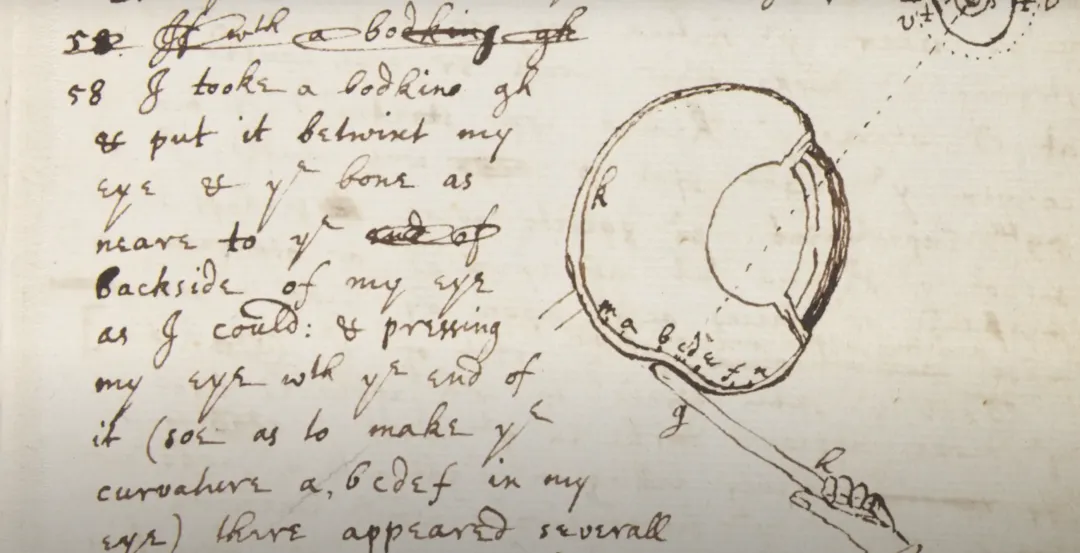 58 If wth a bodking gh
58 I tooke a bodkine gh
& put it betwixt my
eye & ye bone as
neare to ye end of
backside of my eye
as I could: & pressing
my eye wth ye end of
it (soe as to make ye
curvature a, bcdef in my
eye) there appeared severall
k
m a b c d e f n
g
h